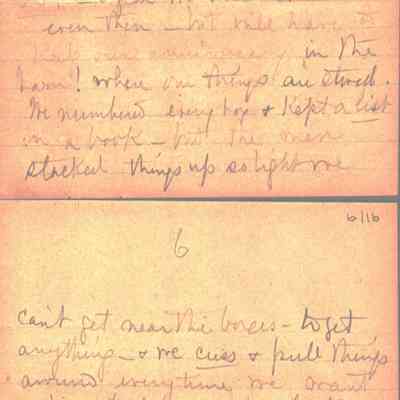 even then - but will have to
in the
barn! where our things are stored.
We numbered every box & kept a list
in a book - but the men
stacked things up so tight we
6/16
6
can't get near the boxes - to get
anything - & we cuss & pull things
around everytime we want